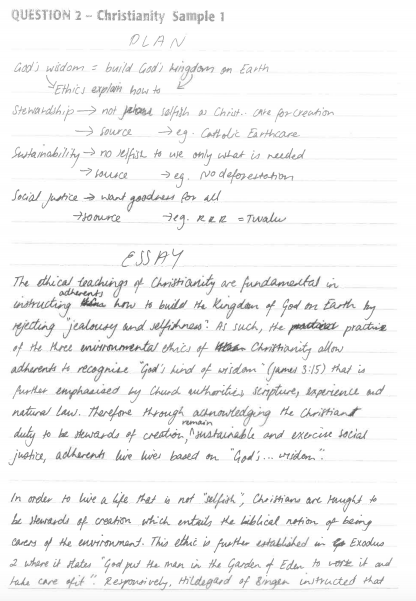 QUESTION 2 – Christianity Sample 1
PLAN
God's wisdom = build God's kingdom on Earth
→ Ethics explain how to
Stewardship → not selfish as Christ.. care for creation
→ source → eg. Catholic Earthcare
Sustainability → no selfish to use only what is needed
→ source → eg. No deforestation
Social justice → want goodness for all
→ source → eg. RRR = Tuvalu
ESSAY
The ethical teachings of Christianity are fundamental in
instructing adherents how to build the Kingdom of God on Earth by
rejecting "jealousy and selfishness". As such, the practise
of the three environmental ethics of Christianity allow
adherents to recognise "God's kind of wisdom" (James 3:15) that is
further emphasised by Church authorities, scripture, experience and
natural law. Therefore through acknowledging the Christian
duty to be stewards of creation, remain sustainable and exercise social
justice, adherents live lives based on "God's... wisdom".
In order to live a life that is not "selfish", Christians are taught to
be stewards of creation which entails the biblical notion of being
carers of the environment. This ethic is further established in Exodus
2 where it states "God put the man in the Garden of Eden to work it and
take care of it". Responsively, Hildegard of Bingen instructed that